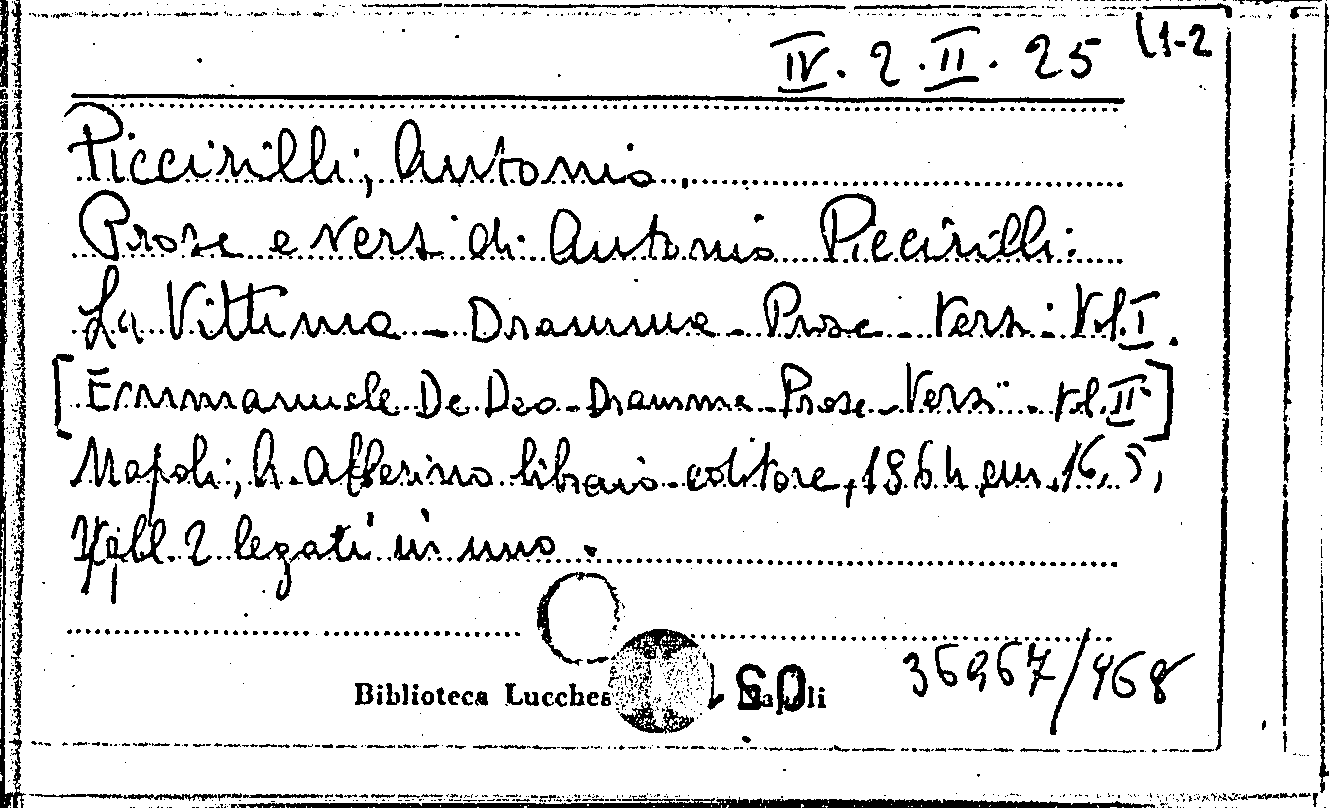 IV. 2. II. 25 (1-2
Piccirilli, Antonio.
Prose e versi di Antonio Piccirilli:
La Vittima - Dramma - Prose - Versi - Vol. I.
[Emmanuele De Deo - Dramma - Prose - Versi - Vol. II]
Napoli, libraio-editore, 1864, cm. 16,5,
2 legati in uno.
Biblioteca Lucches Napoli
36967/968